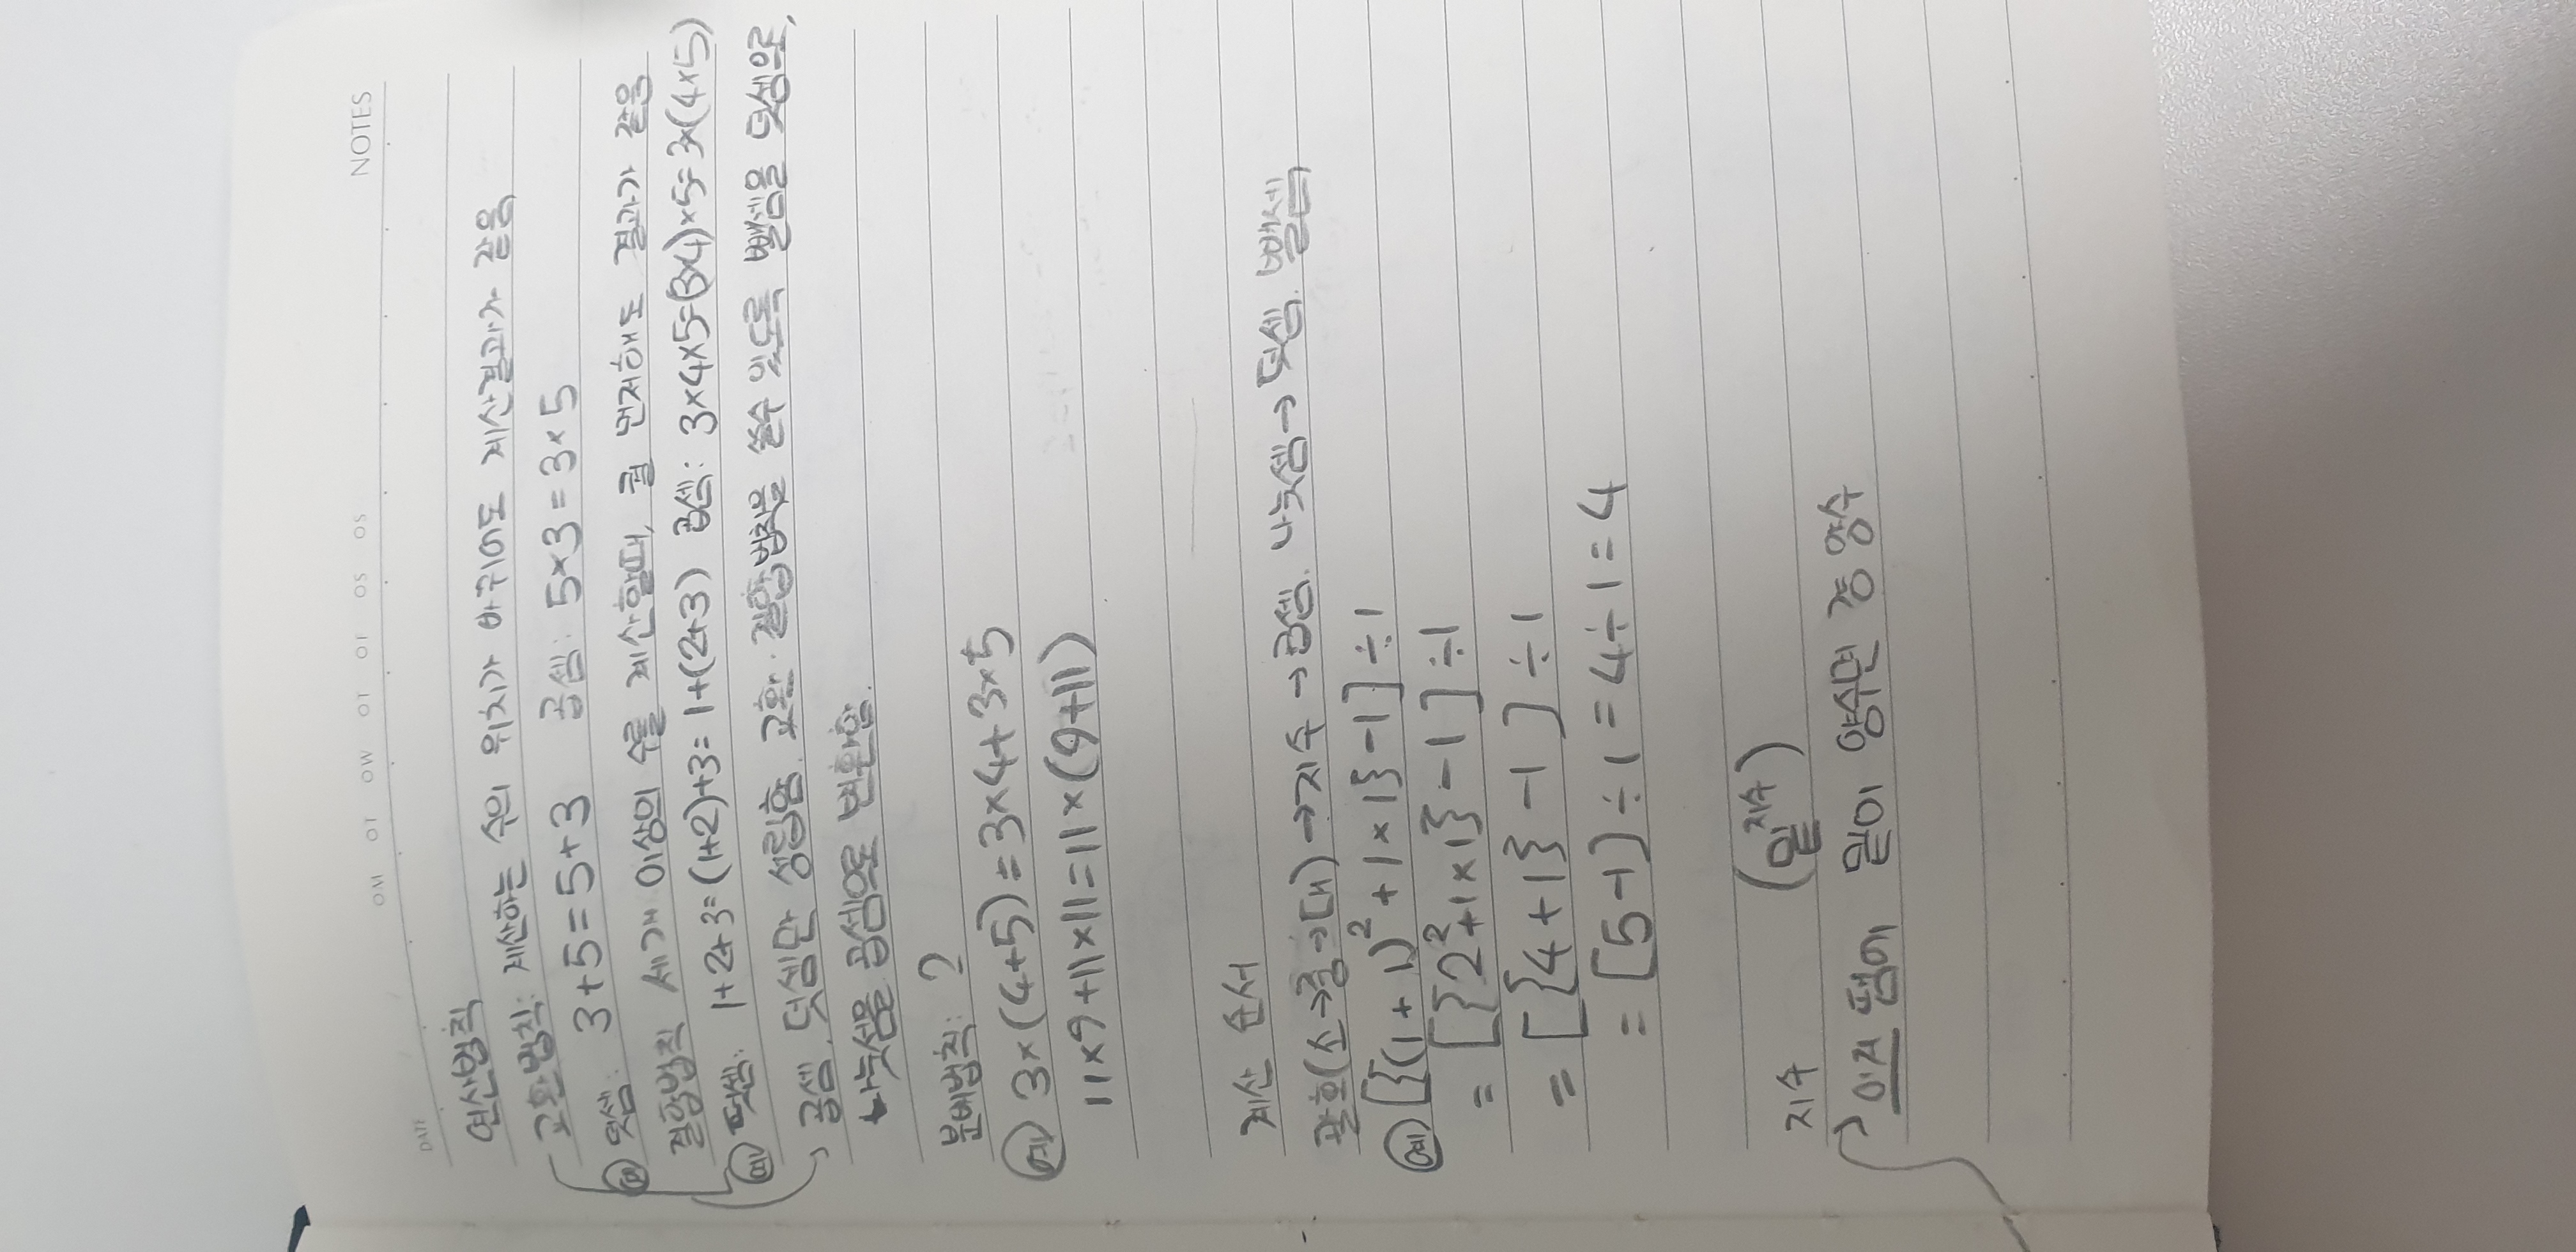 NOTES
OM OT OW OT OF OS OS
DATE
연산법칙
교환법칙: 계산하는 수의 위치가 바뀌어도 계산결과가 같음
예 덧셈: 3+5=5+3 곱셈: 5×3=3×5
결합법칙 세개 이상의 수를 계산할때, 뭘 먼저해도 결과가 같음
예 덧셈: 1+2+3=(1+2)+3=1+(2+3) 곱셈: 3×4×5=(3×4)×5=3×(4×5)
곱셈, 덧셈만 성립함. 교환·결합법칙을 쓸수 있도록 뺄셈을 덧셈으로,
나눗셈을 곱셈으로 변환함.
분배법칙: ?
예 3×(4+5)=3×4+3×5
11×9+11×11=11×(9+11)
계산 순서
괄호(소→중→대)→지수→곱셈. 나눗셈→덧셈. 뺄셈
예 [{(1+1)²+1×1}-1]÷1
=[{2²+1×1}-1]÷1
=[{4+1}-1]÷1
=[5-1]÷1=4÷1=4
지수 (밑지수)
이거 땜에 밑이 양수면 걍 양수